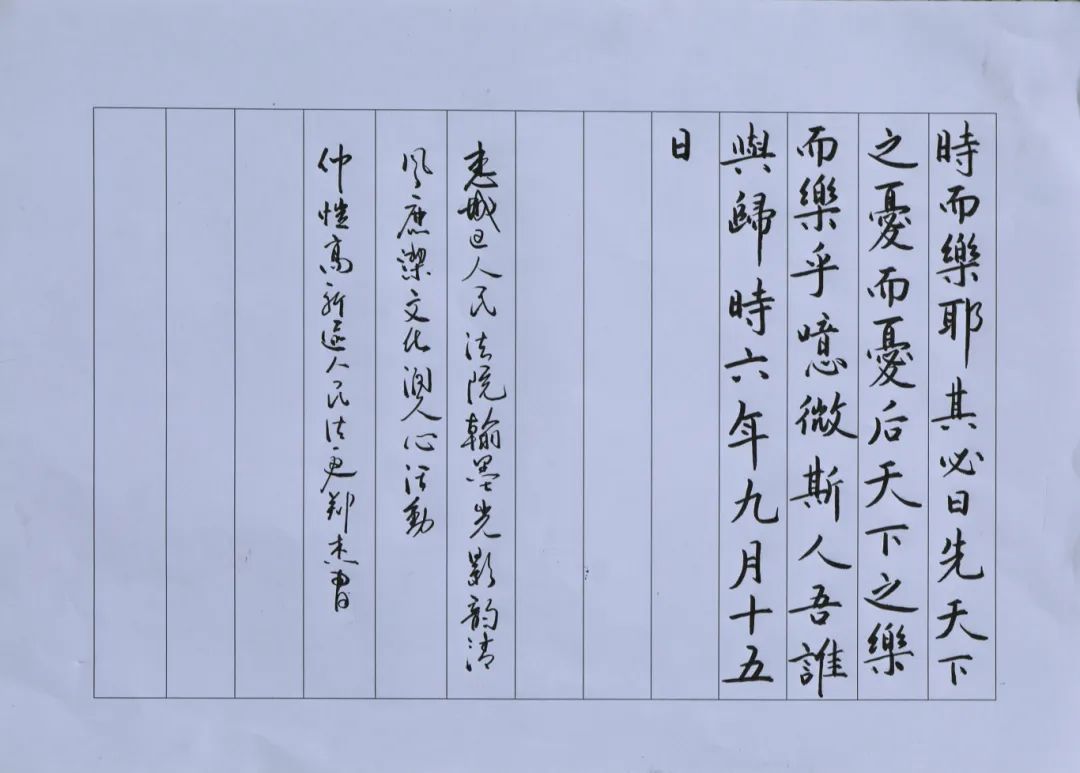 時而樂耶其必曰先天下
之憂而憂后天下之樂
而樂乎噫微斯人吾誰
與歸時六年九月十五
日
惠城区人民法院翰墨光影韵清
风廉潔文化润人心活動
仲愷高新区人民法院鄭杰書